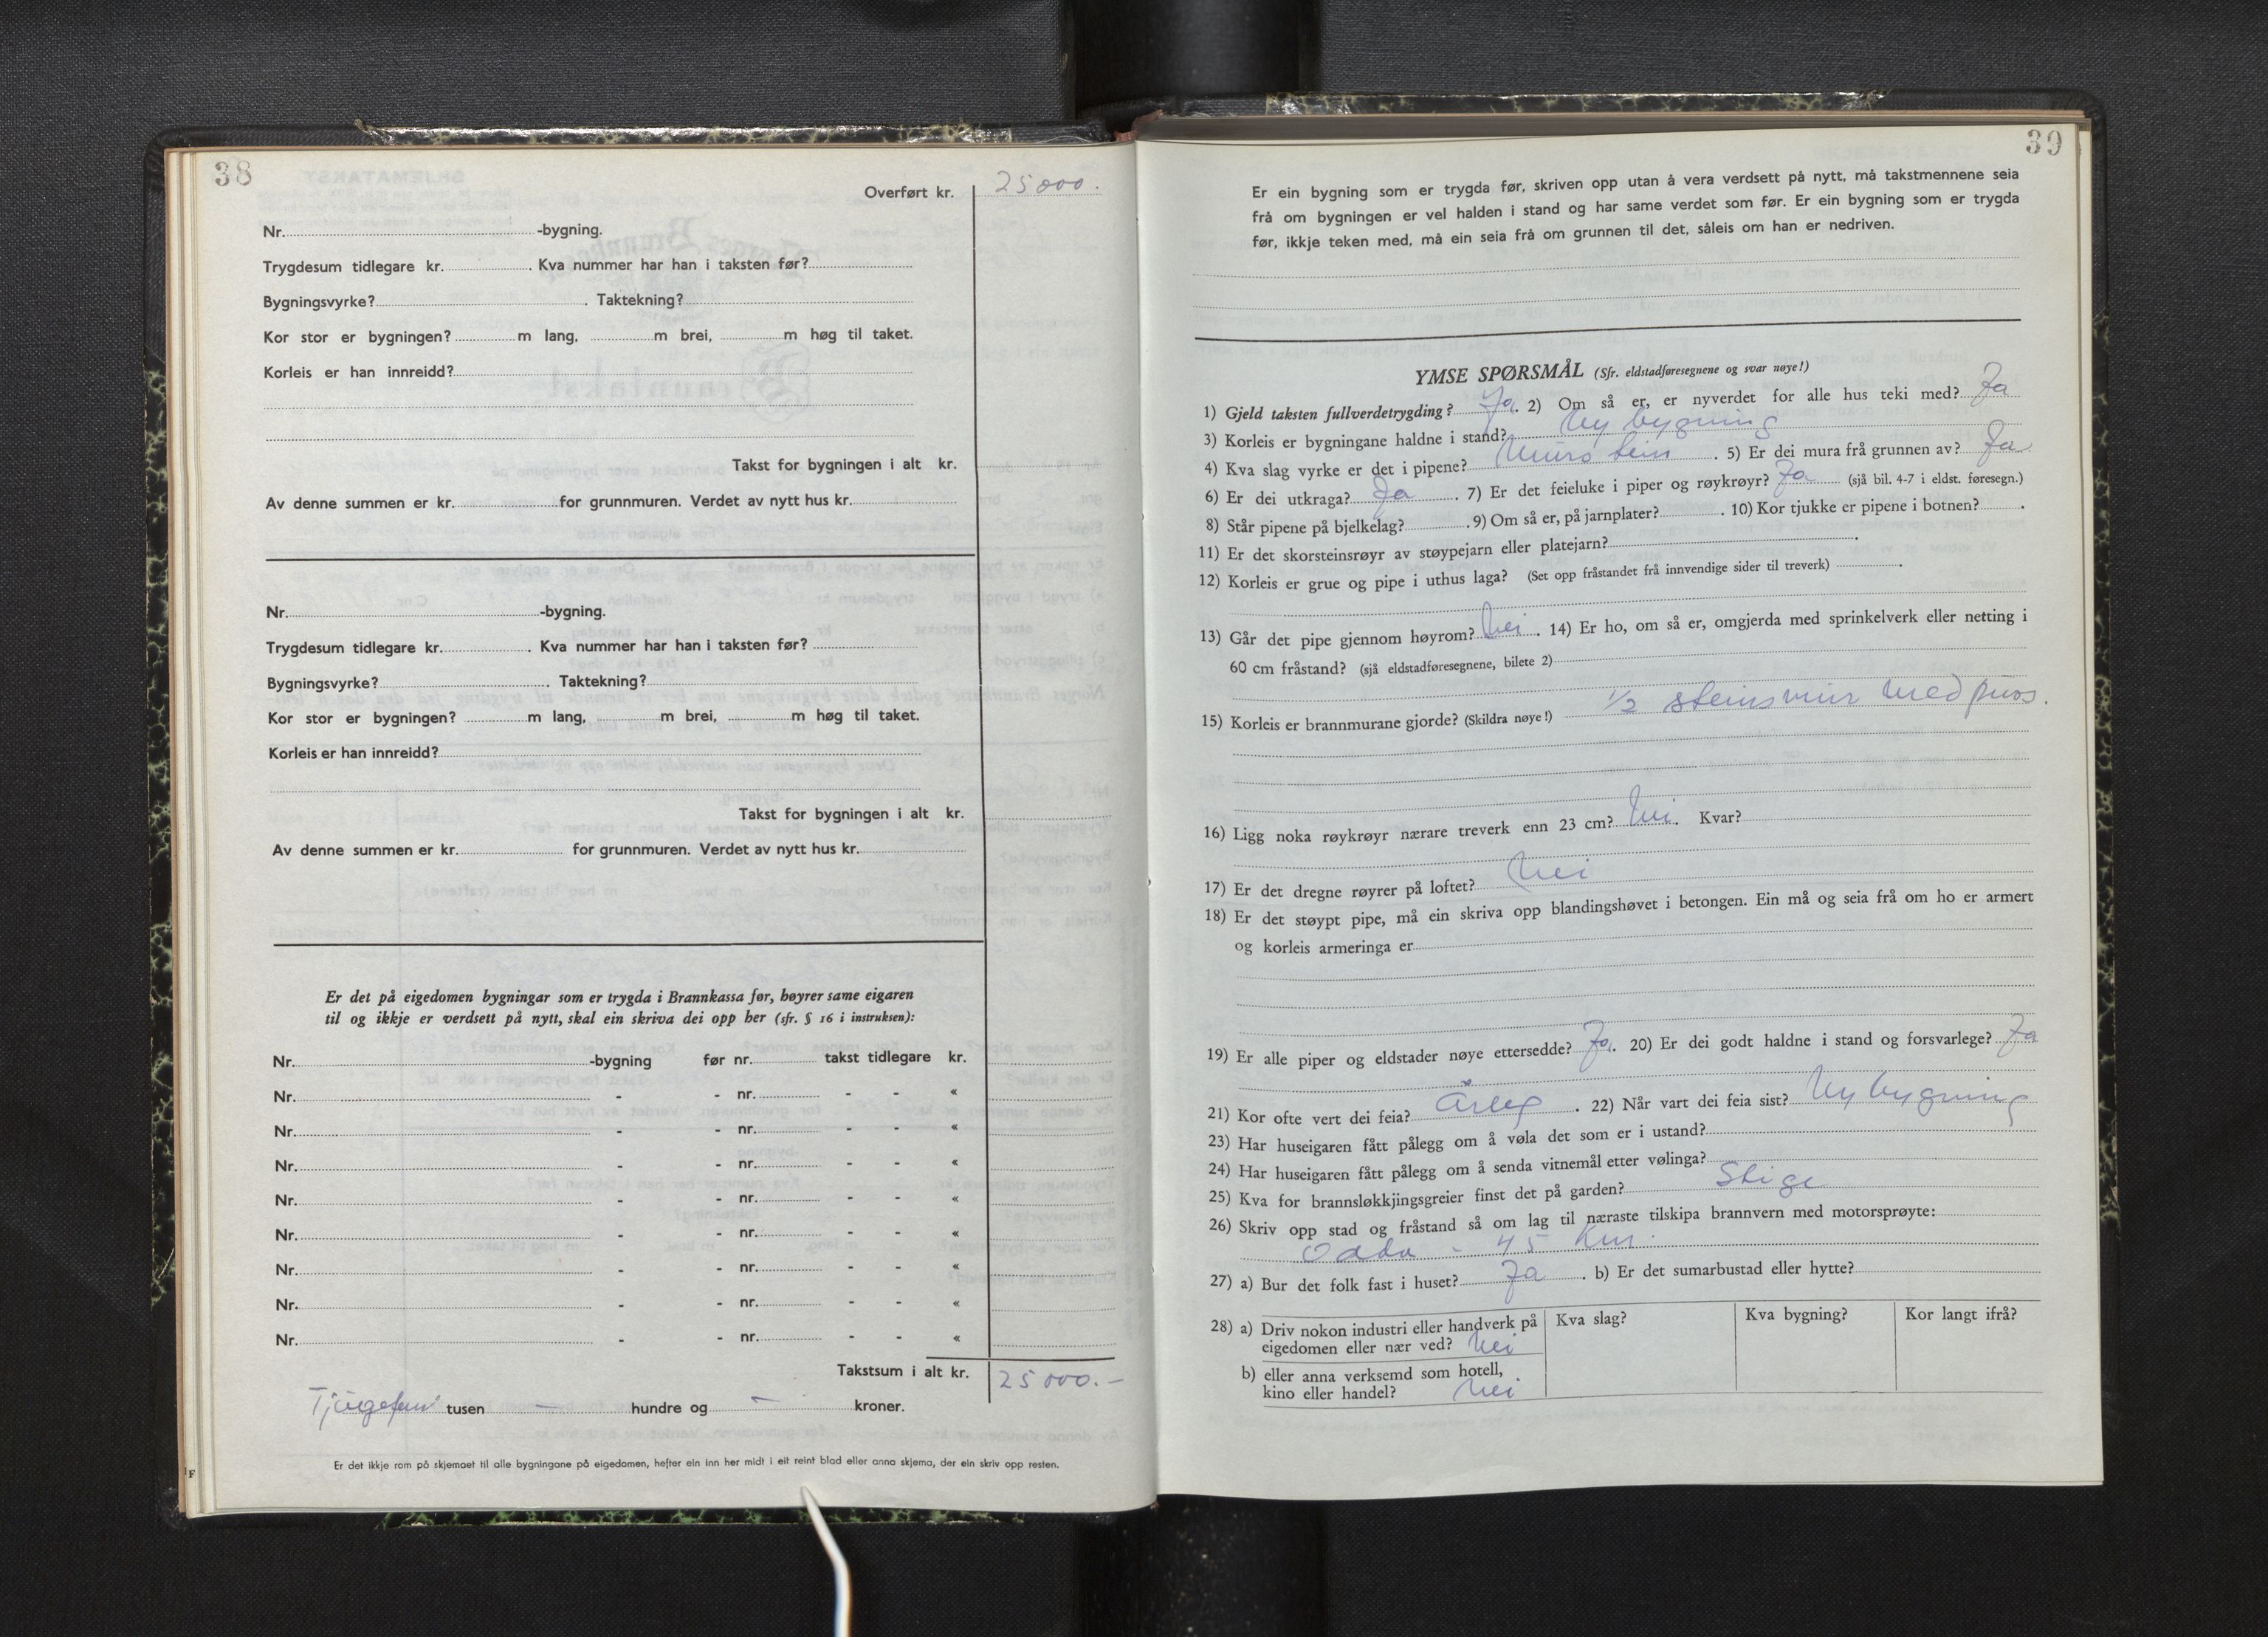 38
Overført kr. 25000.
Nr. -bygning.
Trygdesum tidlegare kr. . Kva nummer har han i taksten før?
Bygningsvyrke? . Taktekning?
Kor stor er bygningen? m lang, m brei, m høg til taket.
Korleis er han innreidd?
Takst for bygningen i alt kr.
Av denne summen er kr. for grunnmuren. Verdet av nytt hus kr.
Nr. -bygning.
Trygdesum tidlegare kr. . Kva nummer har han i taksten før?
Bygningsvyrke? . Taktekning?
Kor stor er bygningen? m lang, m brei, m høg til taket.
Korleis er han innreidd?
Takst for bygningen i alt kr.
Av denne summen er kr. for grunnmuren. Verdet av nytt hus kr.
Er det på eigedomen bygningar som er trygda i Brannkassa før, høyrer same eigaren
til og ikkje er verdsett på nytt, skal ein skriva dei opp her (sfr. § 16 i instruksen):
Nr. -bygning før nr. takst tidlegare kr.
Nr. - - nr. - - «
Nr. - - nr. - - «
Nr. - - nr. - - «
Nr. - - nr. - - «
Nr. - - nr. - - «
Nr. - - nr. - - «
Nr. - - nr. - - «
Nr. - - nr. - - «
Takstsum i alt kr. 25000.-
Tjugefem tusen - hundre og - kroner.
Er det ikkje rom på skjemaet til alle bygningane på eigedomen, hefter ein inn her midt i eit reint blad eller anna skjema, der ein skriv opp resten.
39
Er ein bygning som er trygda før, skriven opp utan å vera verdsett på nytt, må takstmennene seia
frå om bygningen er vel halden i stand og har same verdet som før. Er ein bygning som er trygda
før, ikkje teken med, må ein seia frå om grunnen til det, såleis om han er nedriven.
YMSE SPØRSMÅL (Sfr. eldstadføresegnene og svar nøye!)
1) Gjeld taksten fullverdetrygding? Ja. 2) Om så er, er nyverdet for alle hus teki med? Ja
3) Korleis er bygningane haldne i stand? Ny bygning
4) Kva slag vyrke er det i pipene? Murstein . 5) Er dei mura frå grunnen av? Ja
6) Er dei utkraga? Ja . 7) Er det feieluke i piper og røykrøyr? Ja (sjå bil. 4-7 i eldst. føresegn.)
8) Står pipene på bjelkelag? . 9) Om så er, på jarnplater? . 10) Kor tjukke er pipene i botnen? .
11) Er det skorsteinsrøyr av støypejarn eller platejarn? .
12) Korleis er grue og pipe i uthus laga? (Set opp fråstandet frå innvendige sider til treverk) .
13) Går det pipe gjennom høyrom? Nei . 14) Er ho, om så er, omgjerda med sprinkelverk eller netting i
60 cm fråstand? (sjå eldstadføresegnene, bilete 2)
15) Korleis er brannmurane gjorde? (Skildra nøye!) 1/2 steinsmur med puss.
16) Ligg noka røykrøyr nærare treverk enn 23 cm? Nei. Kvar?
17) Er det dregne røyrer på loftet? Nei
18) Er det støypt pipe, må ein skriva opp blandingshøvet i betongen. Ein må og seia frå om ho er armert
og korleis armeringa er
19) Er alle piper og eldstader nøye ettersedde? Ja. 20) Er dei godt haldne i stand og forsvarlege? Ja
21) Kor ofte vert dei feia? Årleg . 22) Når vart dei feia sist? Ny bygning
23) Har huseigaren fått pålegg om å vøla det som er i ustand?
24) Har huseigaren fått pålegg om å senda vitnemål etter vølinga?
25) Kva for brannsløkkjingsgreier finst det på garden? Stige
26) Skriv opp stad og fråstand så om lag til næraste tilskipa brannvern med motorsprøyte:
Odda - 45 km.
27) a) Bur det folk fast i huset? Ja . b) Er det sumarbustad eller hytte?
28) a) Driv nokon industri eller handverk på Kva slag? Kva bygning? Kor langt ifrå?
eigedomen eller nær ved? Nei
b) eller anna verksemd som hotell,
kino eller handel? Nei